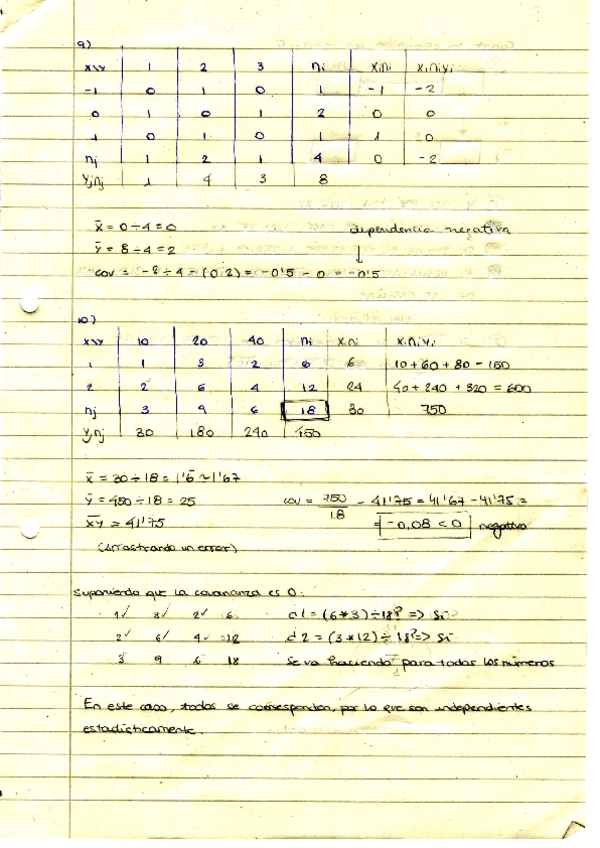 9)
x\y 1 2 3 ni xini xiniyi
-1 0 1 0 1 -1 -2
0 1 0 1 2 0 0
1 0 1 0 1 1 0
nj 1 2 1 4 0 -2
yjnj 1 4 3 8
x̄ = 0÷4 = 0 dependencia negativa
ȳ = 8÷4 = 2 ↓
cov = -2÷4 - (0·2) = -0'5 - 0 = -0'5
10)
x\y 10 20 40 ni xini xiniyi
1 1 3 2 6 6 10+60+80 = 150
2 2 6 4 12 24 40+240+320 = 600
nj 3 9 6 18 30 750
yjnj 30 180 240 450
x̄ = 30÷18 = 1'6 ~ 1'67
ȳ = 450÷18 = 25 cov = 750/18 - 41'75 = 41'67 - 41'75 =
x̄ȳ = 41'75 = -0,08 < 0 negativo
(arrastrando un error)
Suponiendo que la covarianza es 0:
1✓ 3✓ 2✓ 6 ¿1 = (6*3)÷18? => Sí
2✓ 6✓ 4✓ 12 ¿2 = (3*12)÷18? => Sí
3 9 6 18 Se va haciendo para todas los números
En este caso, todos se corresponden, por lo que son independientes
estadísticamente.